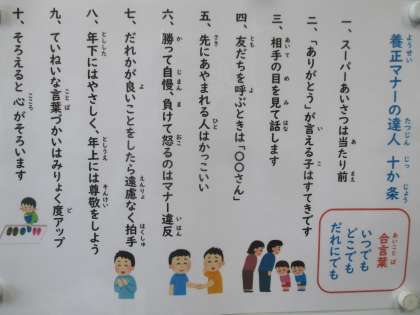 養正マナーの達人 十か条
一、スーパーあいさつは当たり前
二、「ありがとう」が言える子はすてきです
三、相手の目を見て話します
四、友だちを呼ぶときは「〇〇さん」
五、先にあやまれる人はかっこいい
六、勝って自慢、負けて怒るのはマナー違反
七、だれかが良いことをしたら遠慮なく拍手
八、年下にはやさしく、年上には尊敬をしよう
九、ていねいな言葉づかいはみりょく度アップ
十、そろえると 心がそろいます
合言葉
いつでも
どこでも
だれにでも